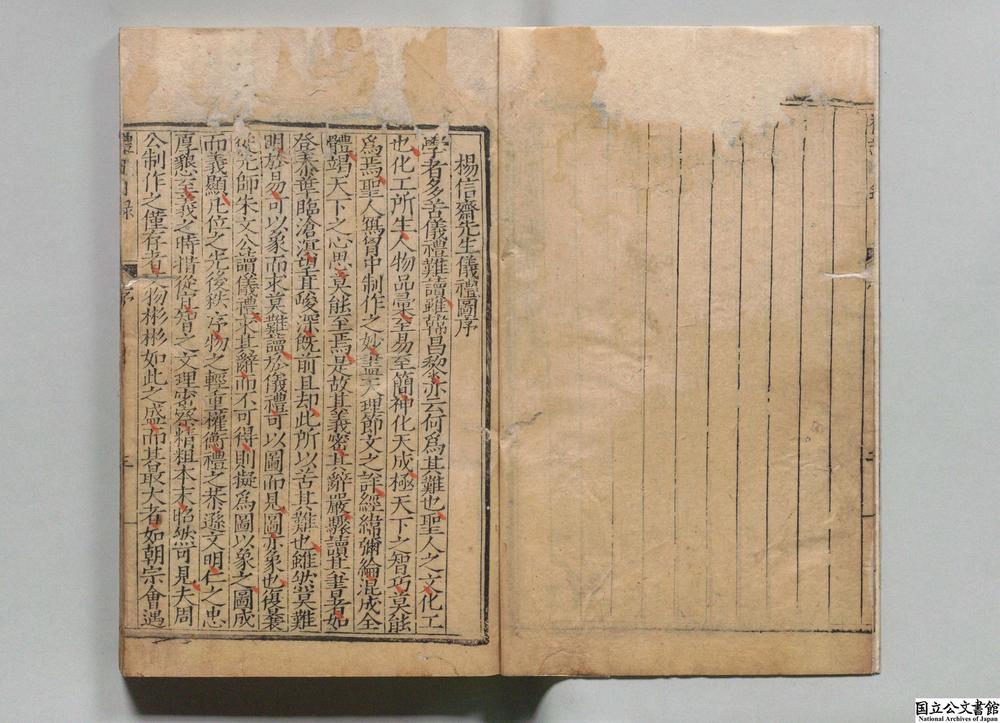 楊信齋先生儀禮圖序
學者多苦儀禮難讀雖韓昌黎亦云何爲其難也聖人之文化工
也化工所生人物品彙至易至簡神化天成極天下之智巧莫能
爲焉聖人寫胷中制作之妙盡天理節文之詳經緯彌綸混成全
體竭天下之心思莫能至焉是故其義密其辭嚴驟讀其書者如
登泰華臨滄溟望其峻深旣前且却此所以苦其難也雖然莫難
明於易可以象而求莫難讀於儀禮可以圖而見圖亦象也復曩
從先師朱文公讀儀禮求其辭而不可得則擬爲圖以象之圖成
而義顯凡位之先後秩序物之輕重權衡禮之恭遜文明仁之忠
厚懇至義之時措從宜智之文理密察精粗本末昭然可見夫周
公制作之僅存者文物彬彬如此之盛而其最大者如朝宗會遇
序
国立公文書館
National Archives of Japan